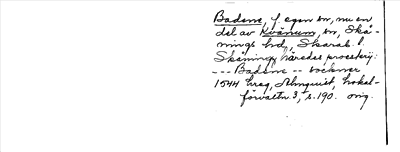 Badene, f. egen sn, nu en
del av Kvänum, sn, Skå-
nings hd, Skarab. l.
Skånings häredes prosteri:
--- Badene -- sockner
1544 hreg, Almquist, Lokal-
förvaltn 3, s. 190. orig.